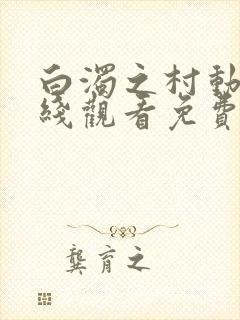 白濁之村動
綫觀看免費
龔育之